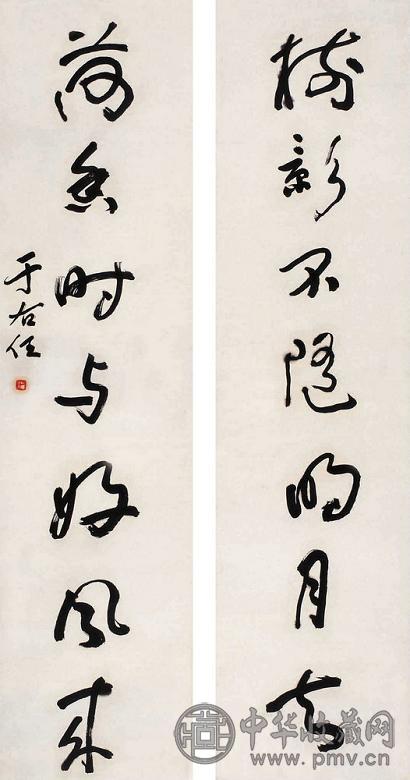 樹影不隨明月去
荷香时与好風来
于右任
中华收藏网
www.pmv.cn